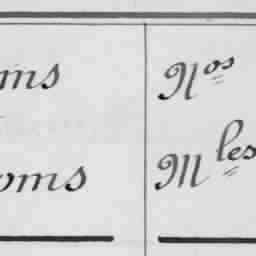 ms
Nos
oms
Mles